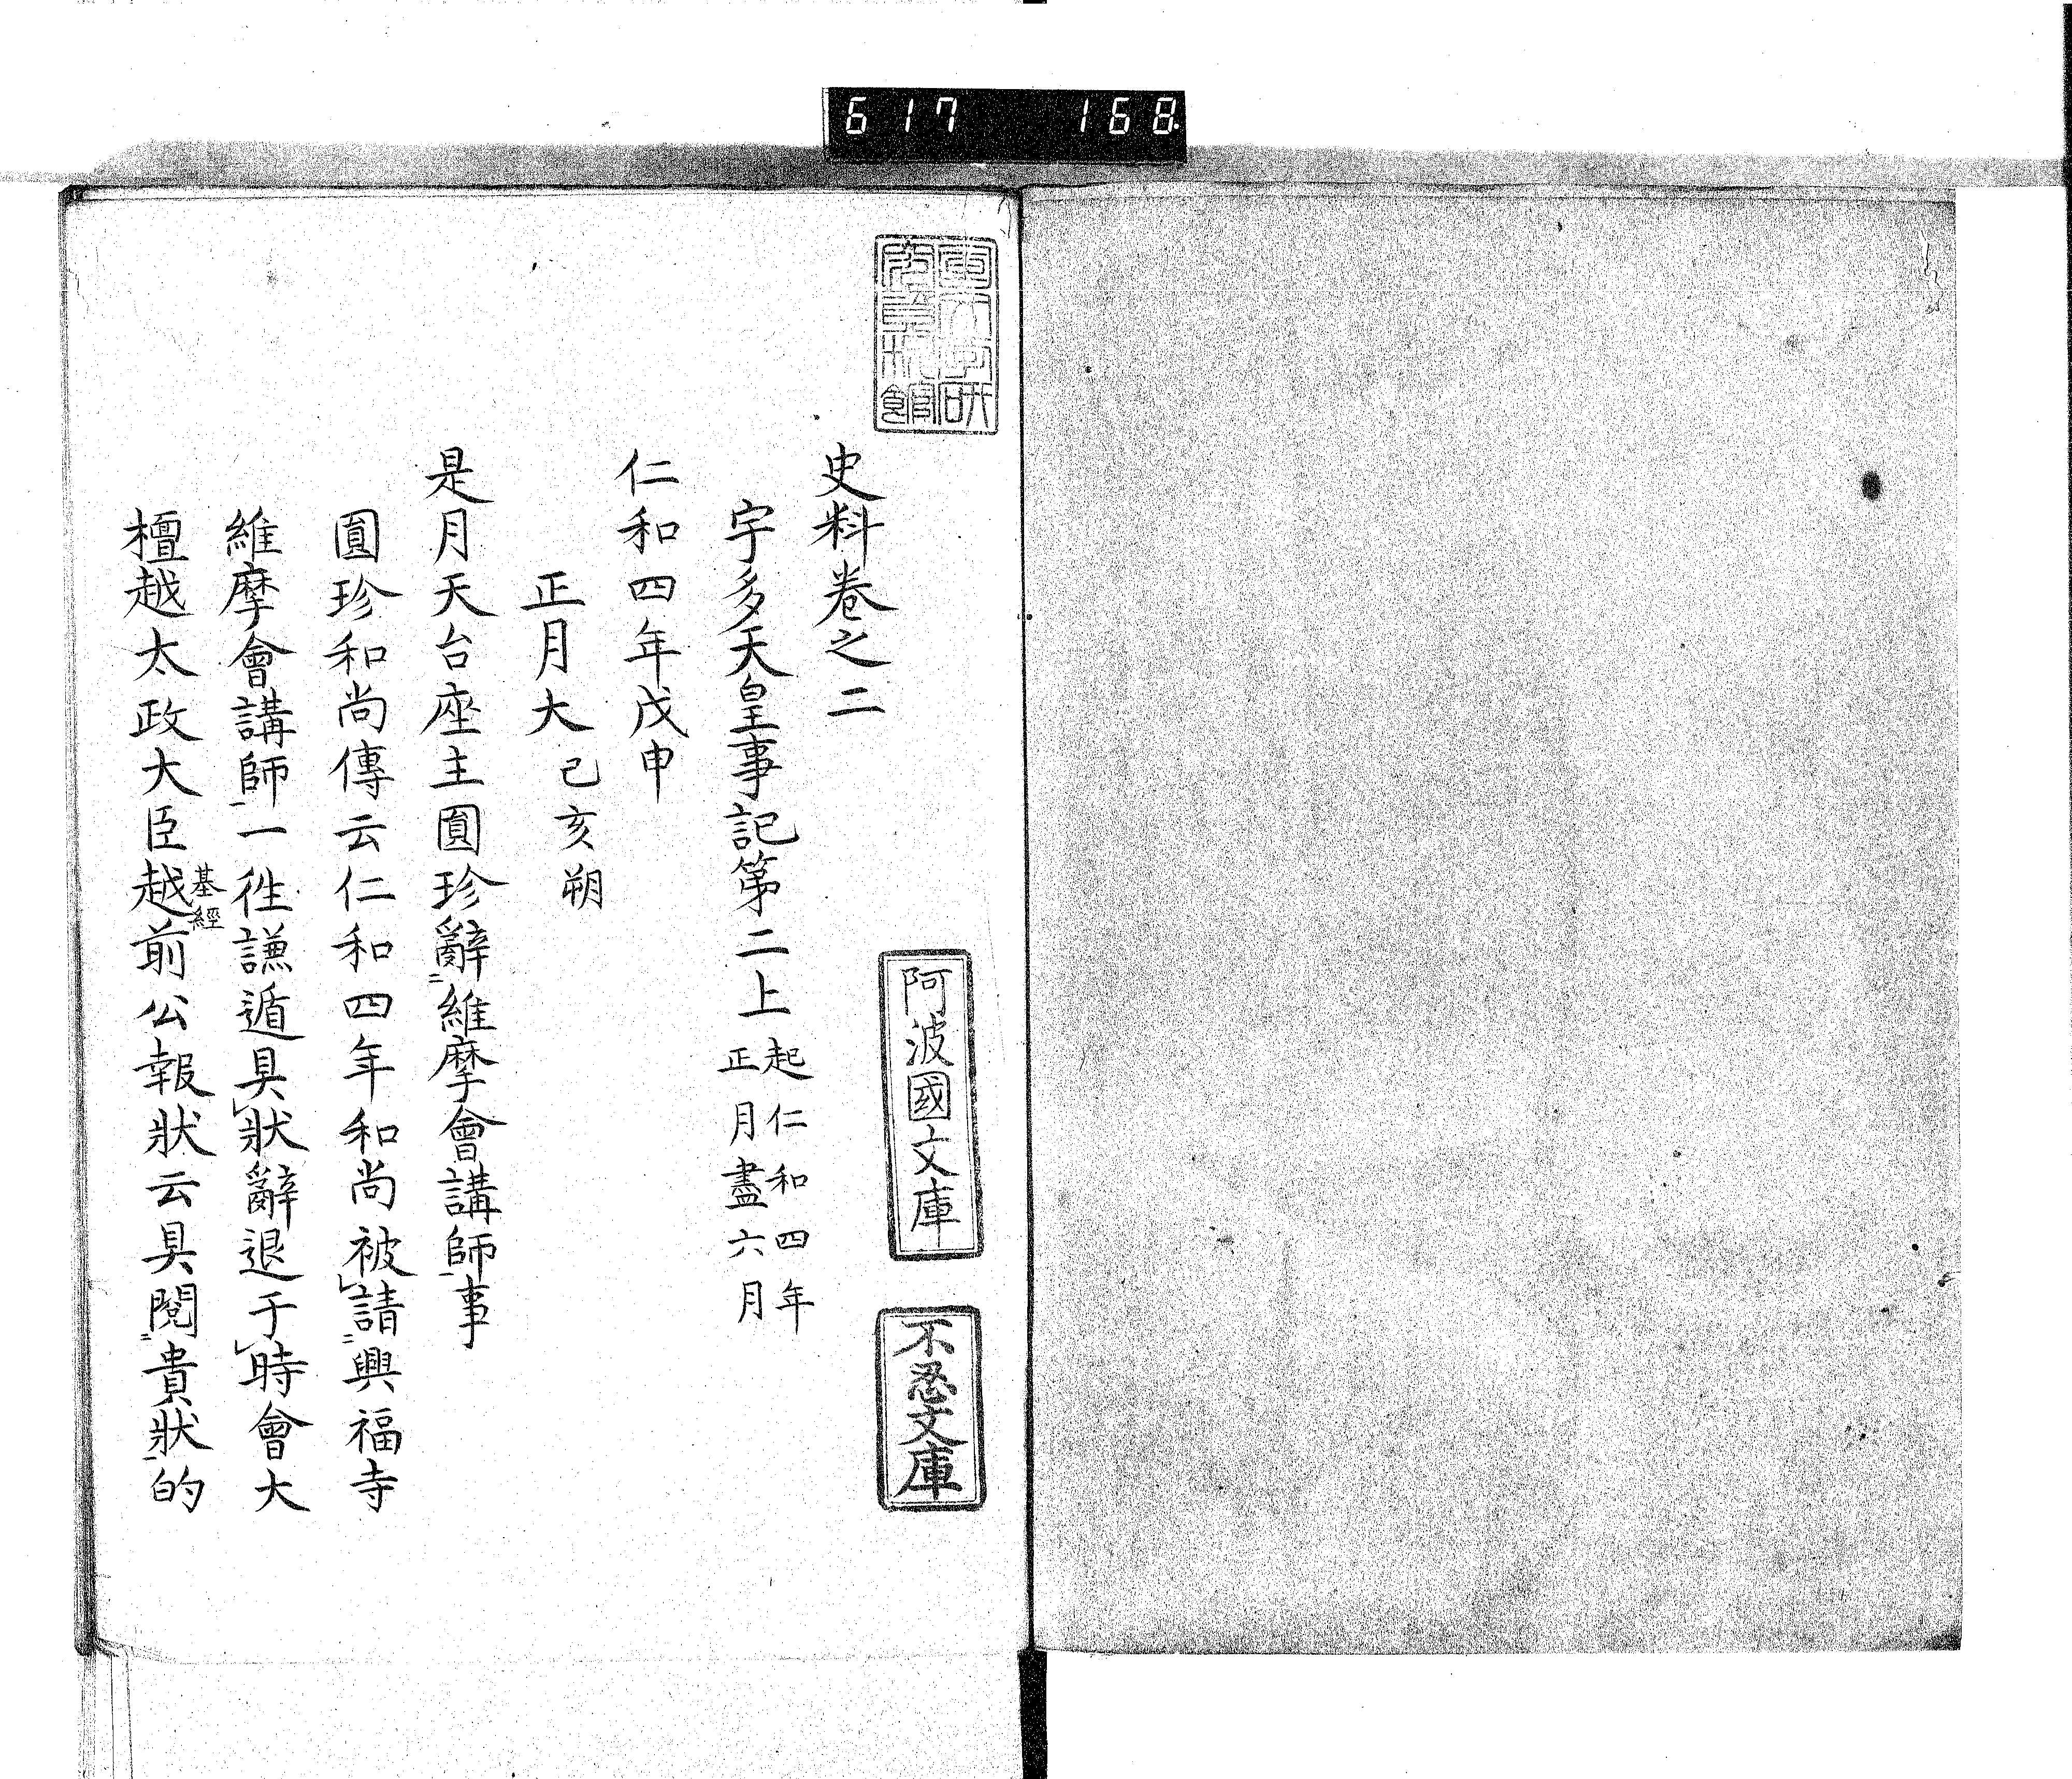 617 168
史料卷之二
宇多天皇事記第二上 起仁和四年
正月盡六月
仁和四年戊申
正月大 己亥朔
是月天台座主圓珍辭維摩會講師事
圓珍和尚傳云仁和四年和尚被請興福寺
維摩會講師一徃謙遁具狀辭退于時會大
檀越太政大臣越前公報狀云具閲貴狀的
基經
阿波國文庫
不忍文庫